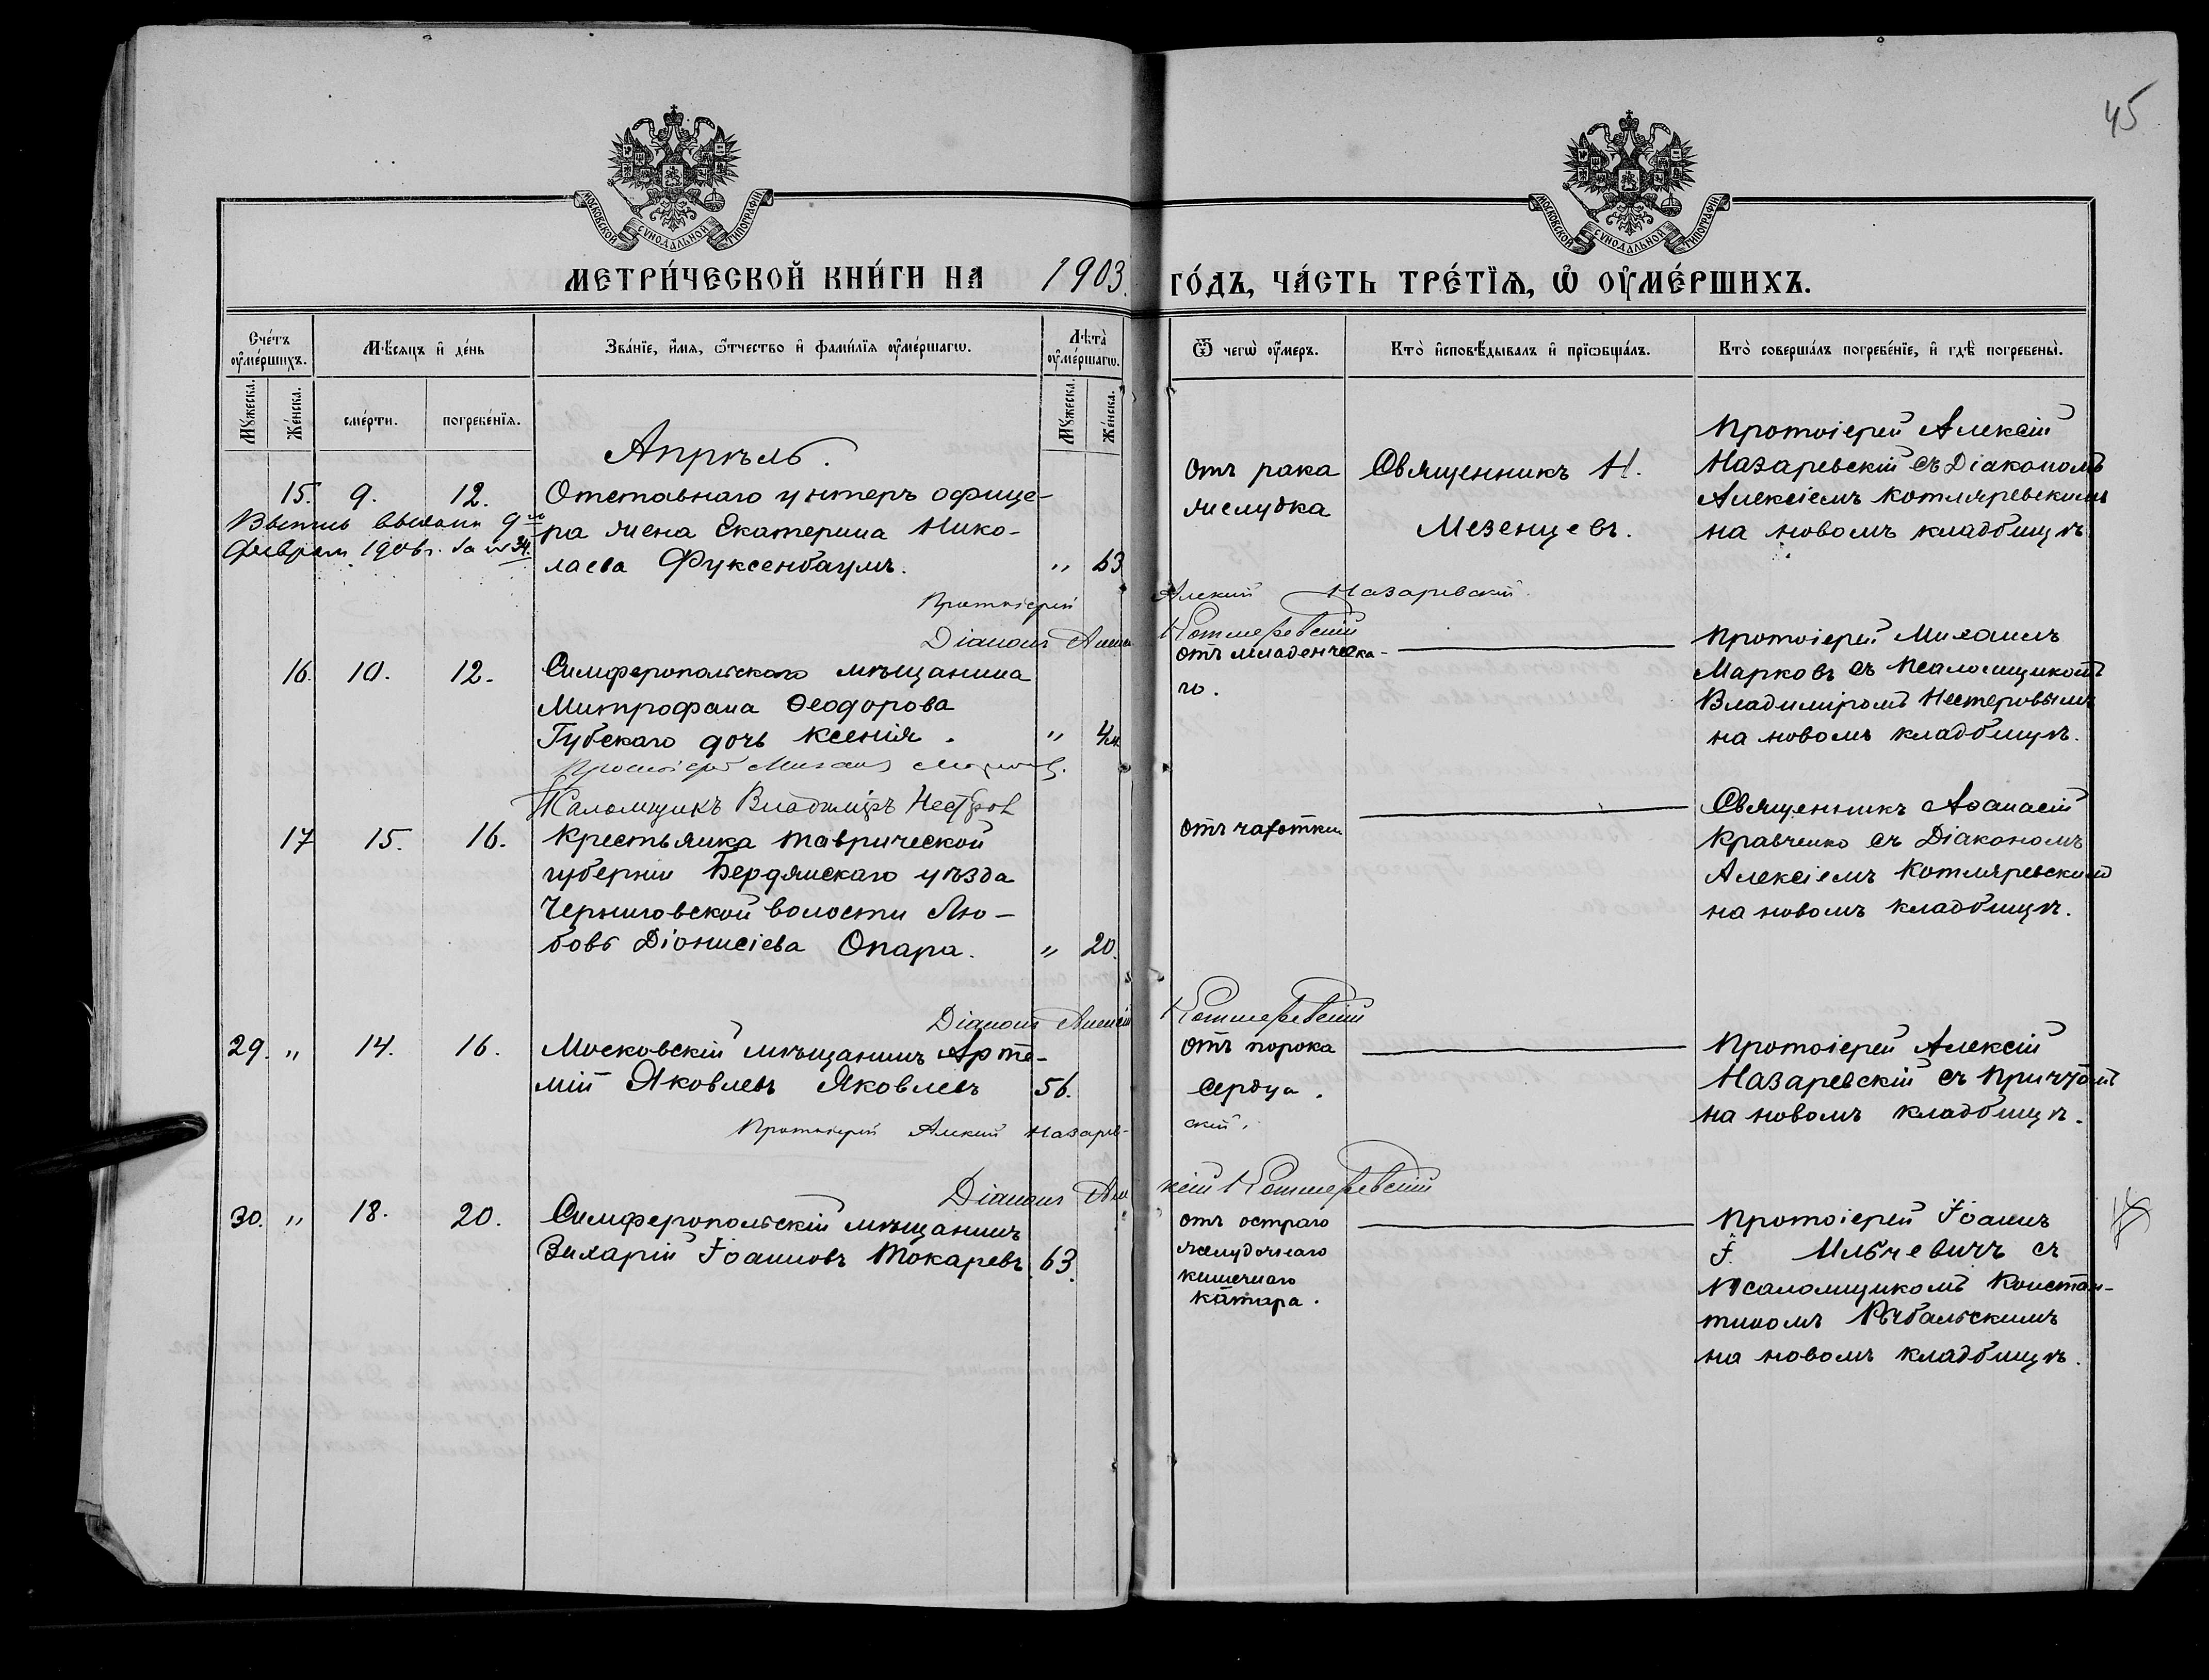 45
МОСКОВСКОЙ СѴНОДАЛЬНОЙ ТИПОГРАФІИ
МОСКОВСКОЙ СѴНОДАЛЬНОЙ ТИПОГРАФІИ
МЕТРИ́ЧЕСКОЙ КНИ́ГИ НА 1903 ГО́ДЪ, ЧА́СТЬ ТРЕ́ТЇѦ, Ѡ҆ ОУ҆МЕ́РШИХЪ.
Сче́тъ оу҆ме́ршихъ.
Мѣ́сяцъ и҆ де́нь
Зва́нїе, и҆́мя, ѻ҆́тчество и҆ фами́лїя оу҆ме́ршагѡ.
Лѣ́та оу҆ме́ршагѡ.
Ѿ чегѡ̀ оу҆́меръ.
Кто̀ и҆сповѣ́дывалъ и҆ прїѡбща́лъ.
Кто̀ соверша́лъ погребе́нїе, и҆ гдѣ̀ погребены̀.
Мꙋ́жеска.
Же́нска.
сме́рти.
погребе́нїя.
Мꙋ́жеска.
Же́нска.
Апрѣль.
15. 9. 12. Отставнаго унтеръ офице-
ра жена Екатерина Нико-
лаева Фуксенбаумъ. " 63
Выпись выслана 9го
февраля 1906 г. за № 34.
отъ рака
желудка
Священникъ Н.
Мезенцевъ.
Протоіерей Алексій
Назаревскій съ Діакономъ
Алексіемъ Котляревскимъ
на новомъ кладбищѣ
Протоіерей Алексій Назаревскій.
Діаконъ Алексій Котляревскій
16. 10. 12. Симферопольскаго мѣщанина
Митрофана Ѳеодорова
Губскаго дочь Ксенія. " 4 м.
отъ младенческа-
го.
Протоіерей Михаилъ
Марковъ съ Псаломщикомъ
Владиміромъ Нестеровымъ
на новомъ кладбищѣ.
Протоіерей Михаилъ Марковъ.
Псаломщикъ Владиміръ Нестеровъ
17 15. 16. Крестьянка Таврической
губерніи Бердянскаго уѣзда
Черниговской волости Лю-
бовь Діонисіева Опара. " 20.
отъ чахотки
Священникъ Аѳанасій
Кравченко съ Діакономъ
Алексіемъ Котляревскимъ
на новомъ кладбищѣ.
Діаконъ Алексій Котляревскій
29. " 14. 16. Московскій мѣщанинъ Арте-
мій Яковлевъ Яковлевъ 56.
отъ порока
сердца.
Протоіерей Алексій
Назаревскій съ причтомъ
на новомъ кладбищѣ.
Протоіерей Алексій Назарев-
скій.
Діаконъ Алексій Котляревскій
30. " 18. 20. Симферопольскій мѣщанинъ
Іоанновъ Токаревъ 63.
отъ остраго
желудочнаго
кишечнаго
катара.
Протоіерей Іоаннъ
І. Ильчевичъ съ
Псаломщикомъ Констан-
тиномъ Рыбальскимъ
на новомъ кладбищѣ.